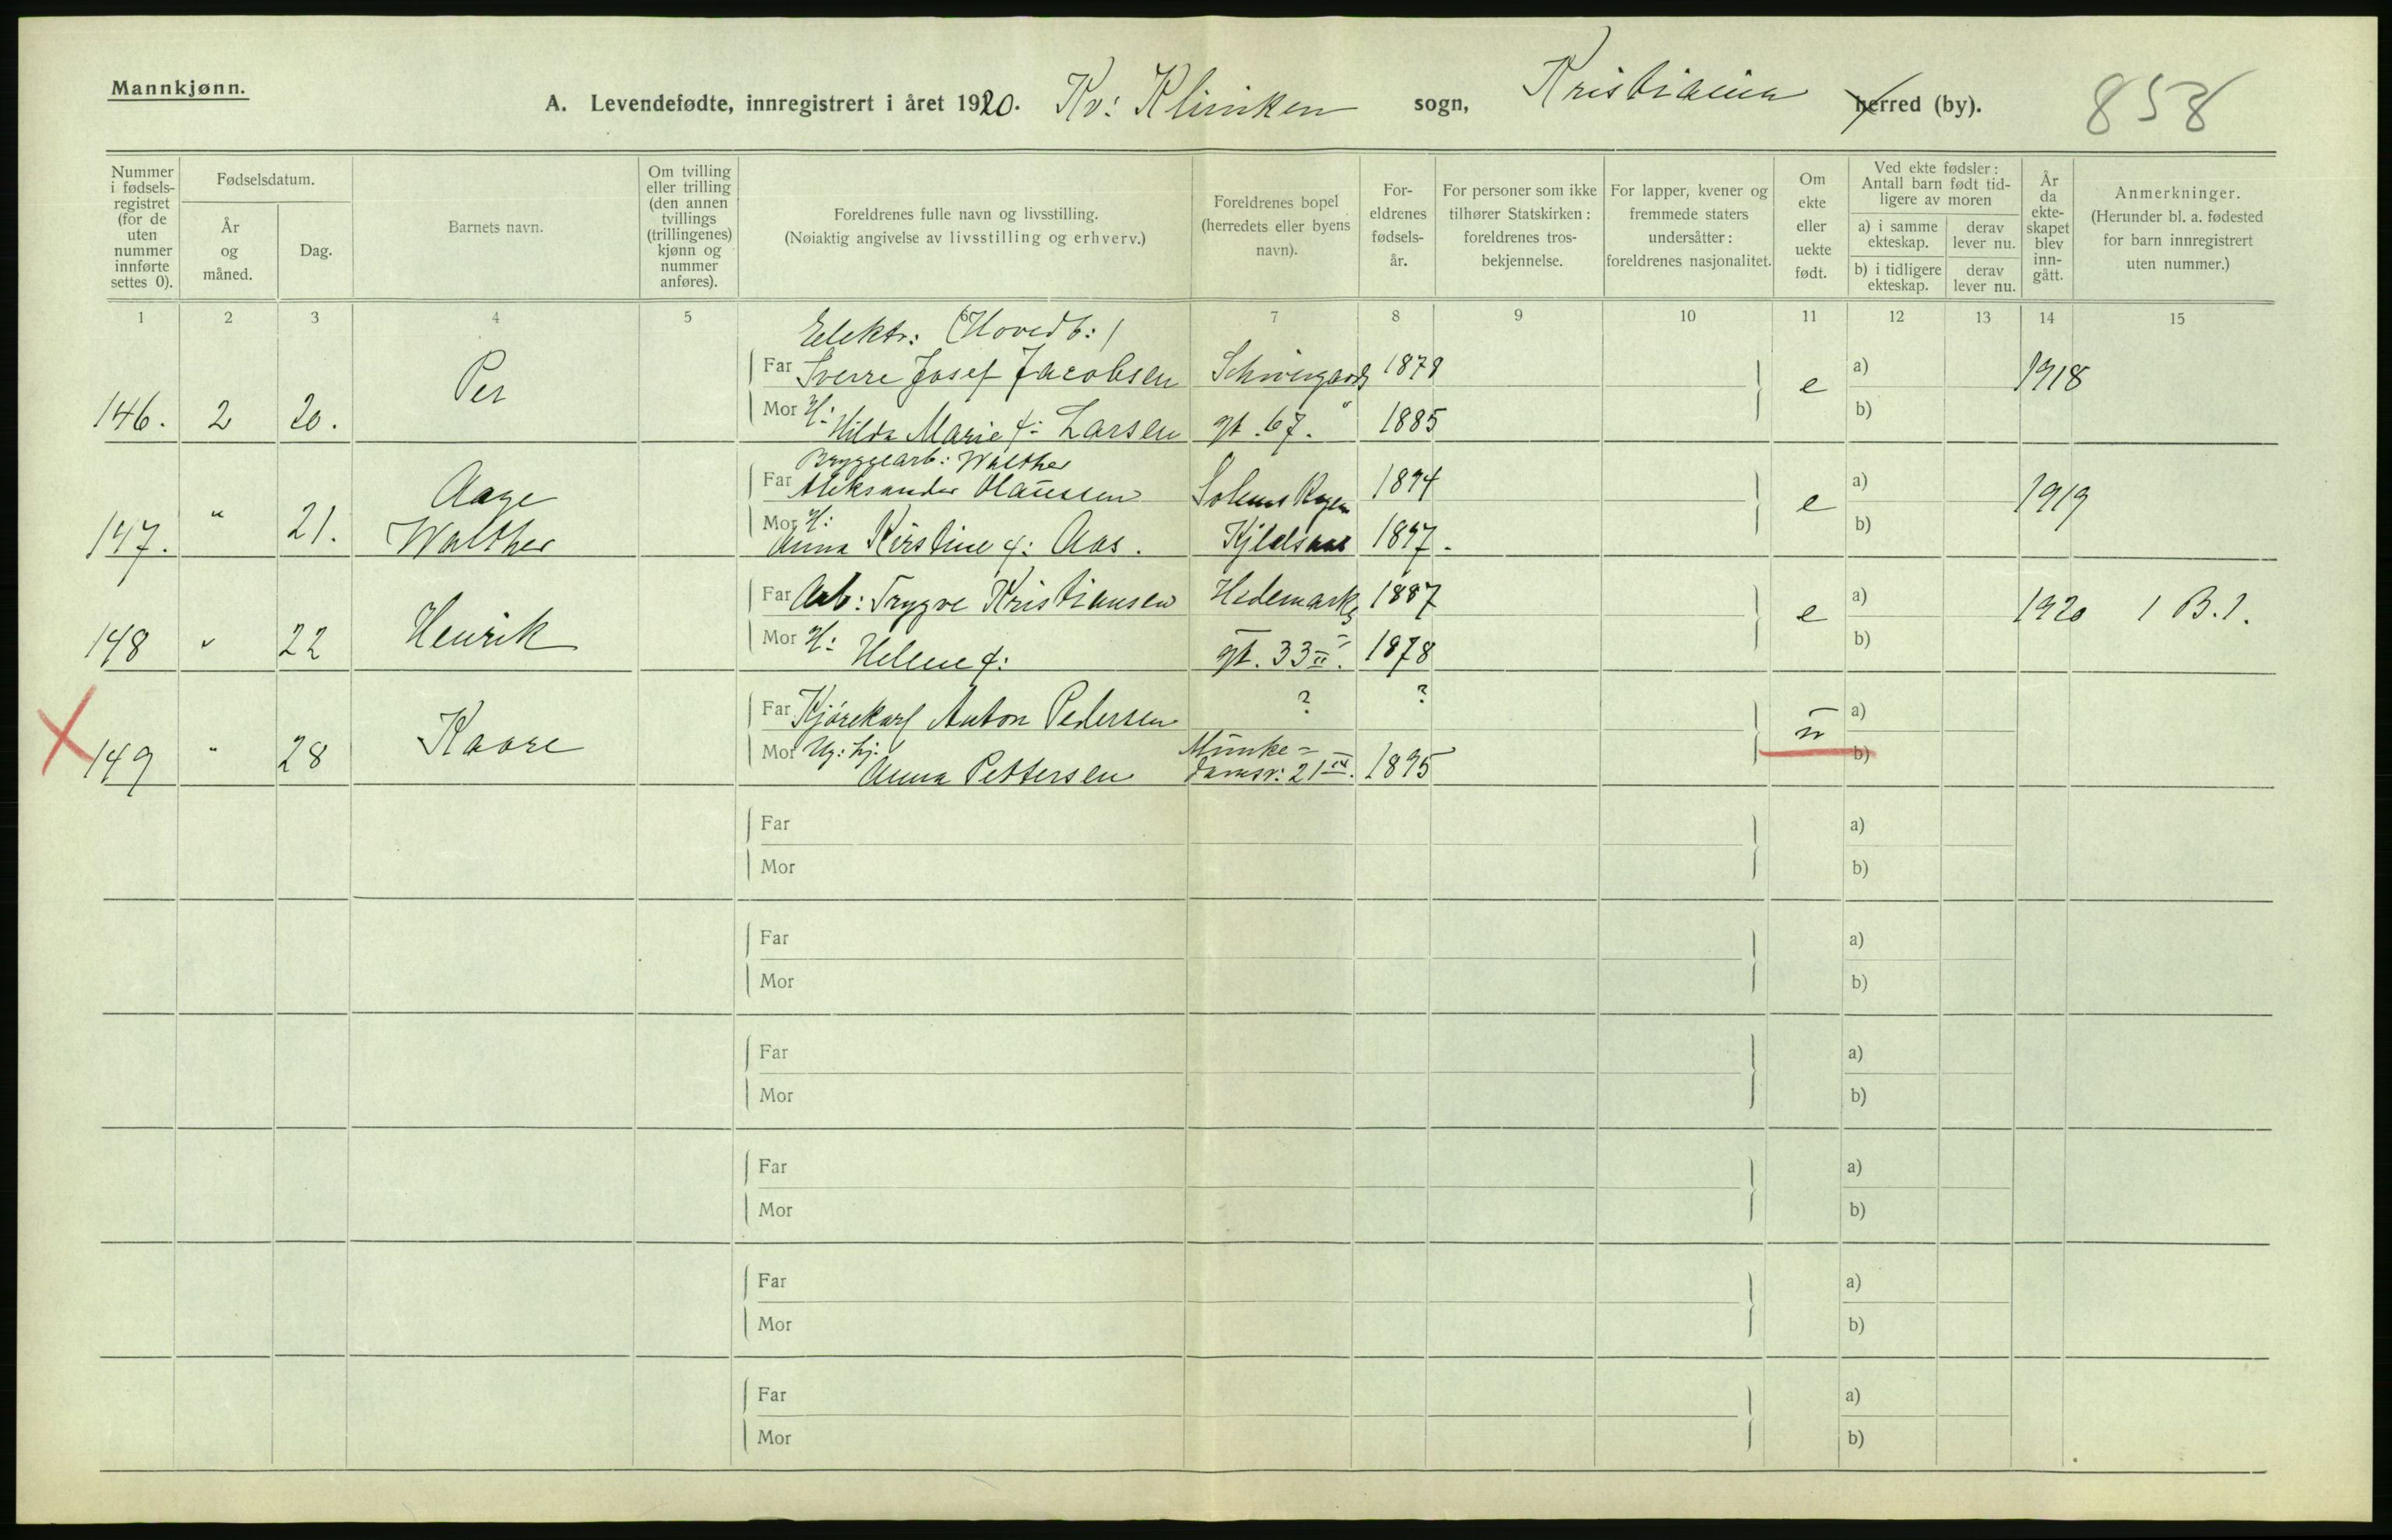 Mannkjønn.
A. Levendefødte, innregistrert i året 1920. Kv: Kliniken sogn, Kristiania herred (by). 858
Nummer i fødselsregistret (for de uten nummer innførte settes 0).
Fødselsdatum.
År og måned.
Dag.
Barnets navn.
Om tvilling eller trilling (den annen tvillings (trillingenes) kjønn og nummer anføres).
Foreldrenes fulle navn og livsstilling.
(Nøiaktig angivelse av livsstilling og erhverv.)
Foreldrenes bopel (herredets eller byens navn).
Foreldrenes fødselsår.
For personer som ikke tilhører Statskirken: foreldrenes trosbekjennelse.
For lapper, kvener og fremmede staters undersåtter: foreldrenes nasjonalitet.
Om ekte eller uekte født.
Ved ekte fødsler: Antall barn født tidligere av moren
a) i samme ekteskap. derav lever nu.
b) i tidligere ekteskap. derav lever nu.
År da ekteskapet blev inngått.
Anmerkninger.
(Herunder bl. a. fødested for barn innregistrert uten nummer.)
1 2 3 4 5 6 7 8 9 10 11 12 13 14 15
Elektr: (Hovedb:)
Far Sverre Josef Jacobsen Schweigaards 1878 a)
146. 2 20. Per e 1918
Mor H: Hilda Marie f: Larsen gt. 67. 1885 b)
Bryggearb: Walther
Far Aleksander Olaussen 1894 a)
147. " 21. Aage Walther e 1919
Mor H: Anna Kirstine f: Aas. Kjelsaas 1897. b)
Far Arb: Trygve Kristiansen Hedemarks 1887 a)
148 " 22 Henrik e 1920 1 B. 1.
Mor H: Helene f: gt. 33 II. 1878 b)
Far Kjørekarl Anton Pedersen ? ? a)
149 " 28 Kaare u
Mor Ug: hj: Anna Pettersen Munkedamsv: 21 1895 b)
Far a)
Mor b)
Far a)
Mor b)
Far a)
Mor b)
Far a)
Mor b)
Far a)
Mor b)
Far a)
Mor b)